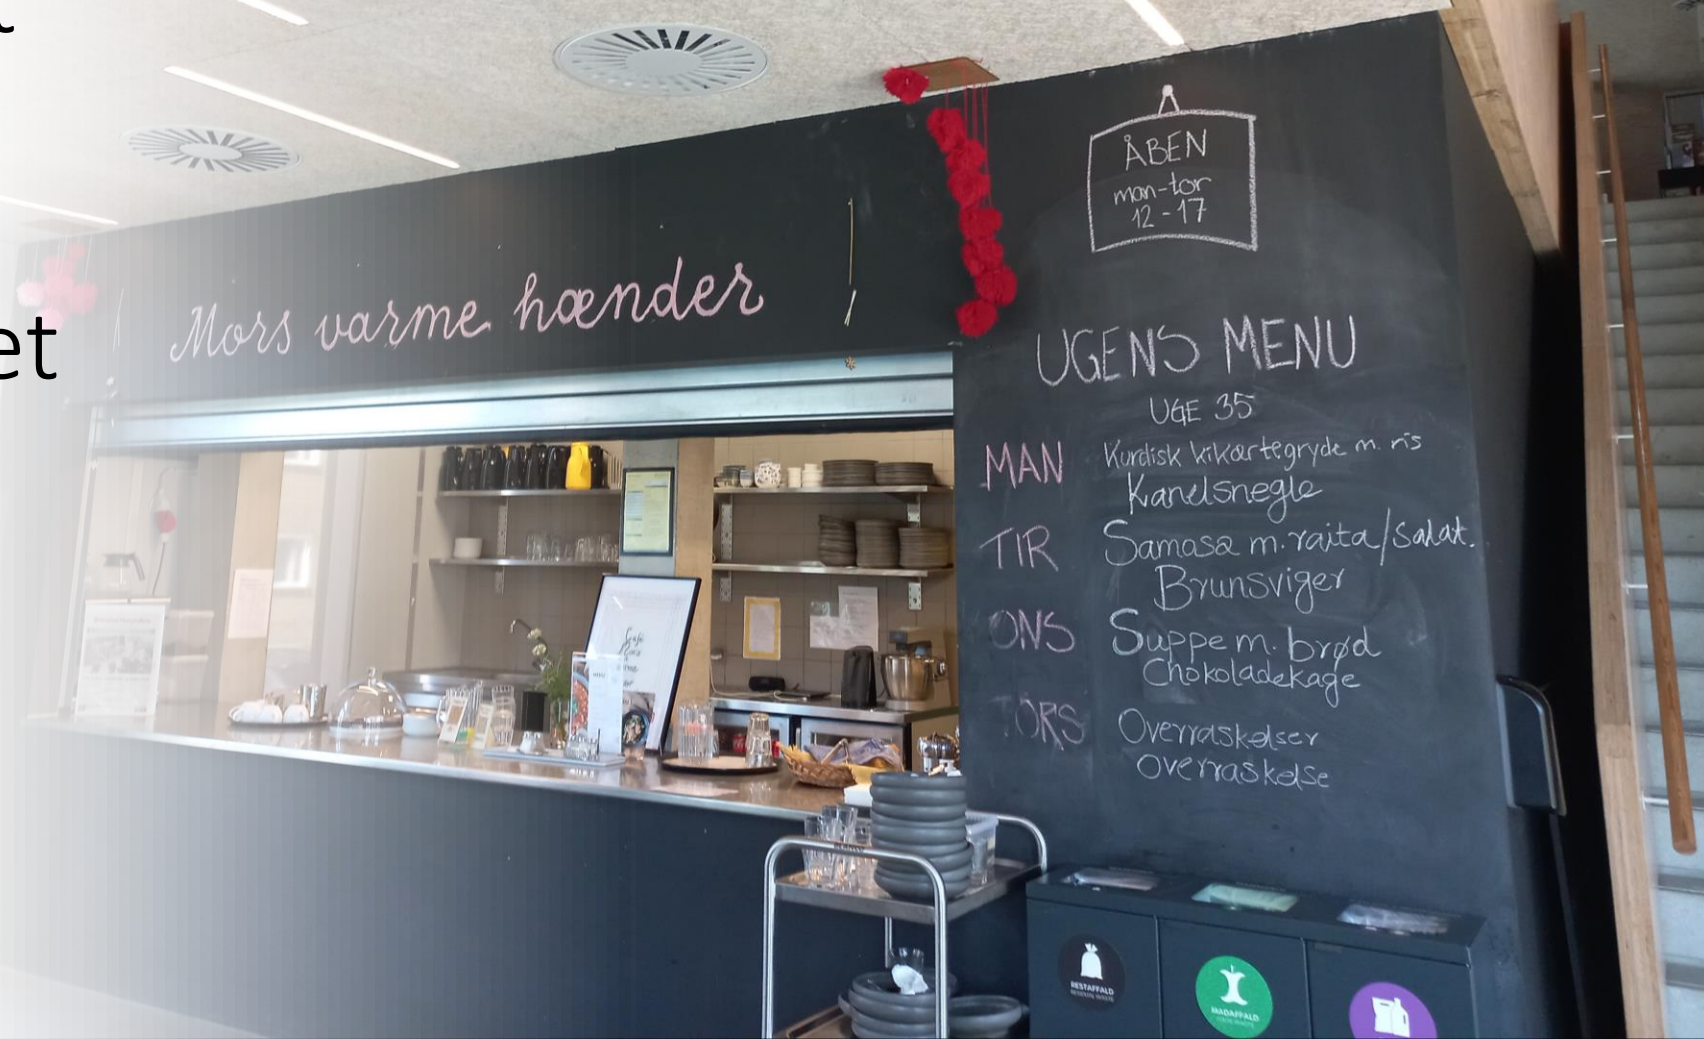 et
Mors varme hænder
ÅBEN
man-tor
12-17
UGENS MENU
UGE 35
MAN Kurdisk kikærtegryde m. ris
Kanelsnegle
TIR Samasa m. raita/salat.
Brunsviger
ONS Suppe m. brød
Chokoladekage
TORS Overraskelser
Overraskelse
RESTAFFALD
MADAFFALD